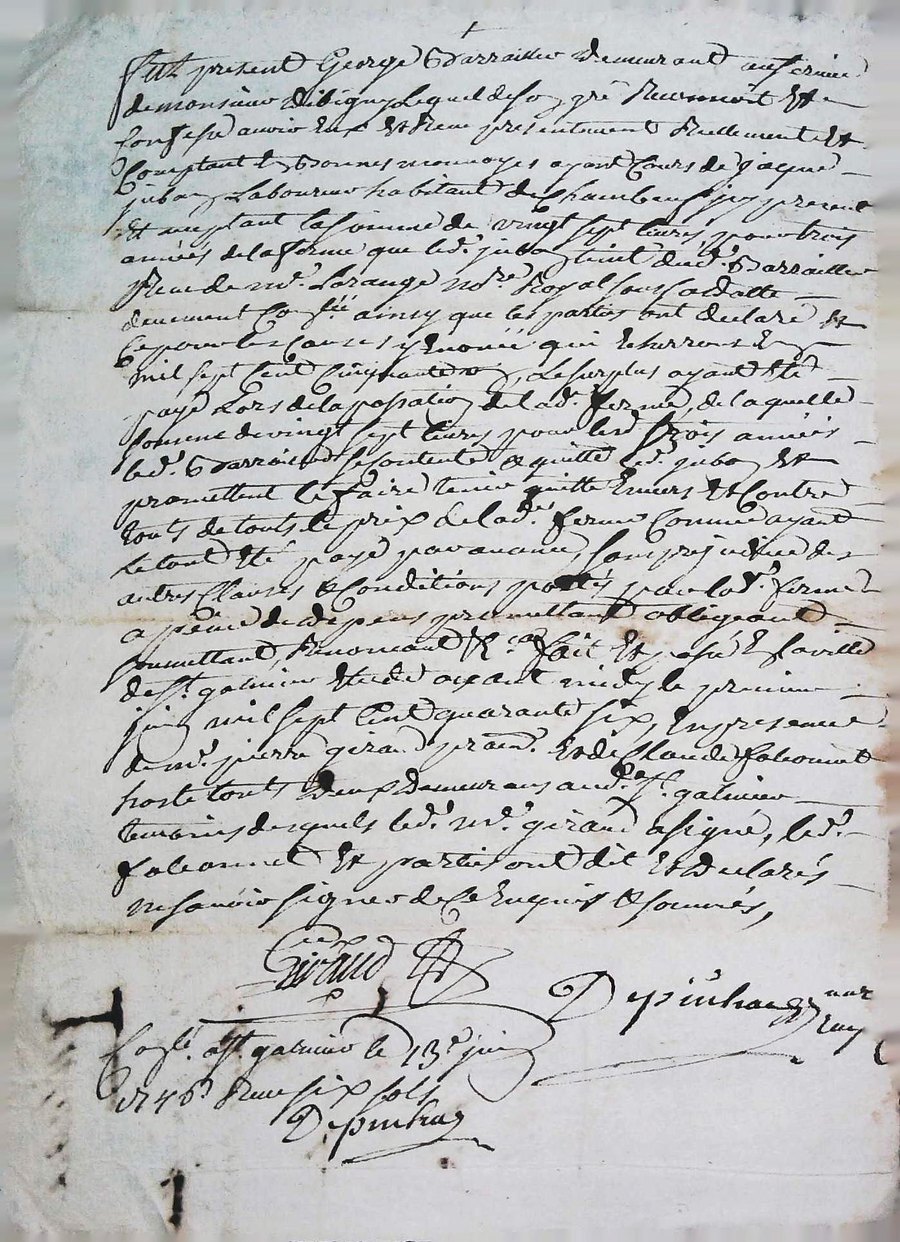 fut present George Darrailler demeurant en ferme
de monsieur dibigny Lequel de son gré Reconnoit Et
Confesse avoir Eu et Receu presentement Reellement Et
Comptant Et bonnes monnoyes ayant Cours de jaque
juban Laboureur habitant de Chambeuf jcy present
Et aceptant la somme de vingt sept livres pour trois
années de la ferme que led. juban tient dud. Darrailler
Receu de Mr. Lorange nore. Royal soussa datte
deuement Conllé ainsy que les parties ont declaré Et
Ce pour les Causes y Enoncé qui Echerront En
mil sept Cent Cinquante un, Le surplus ayant Eté
payé Lors de la passation de lad. ferme, de laquelle
somme de vingt sept livres pour les d. trois années
led. Darrailler se contente & quitte led. juban Et
promettent le faire tenir quitte Envers Et Contre
touts de tout le prix de lad. ferme Comme ayant
Le tout Eté payé par avance, sans prejudice des
autres Clauses & Conditions portés par lad. ferme
a peine de depens promettant obligeant
soumettant, Renoncant &ca. fait Et passé En la ville
de st. galmier Etude avant midy le premier
juin mil sept Cent quarante six, En presence
de Mr. pierre giraud prat. Et de Claude falconnet
hoste touts Deux Demeurans aud. st. galmier
temoins desquels led. Mr. giraud a signé, led.
falconnet Et parties ont dit Et declarés
ne savoir signer de Ce Enquis & sommés,
Giraud
Depinhac nore
Roy
Conlé. a st. galmier le 13e juin
1746 Receu six sols
Depinhac